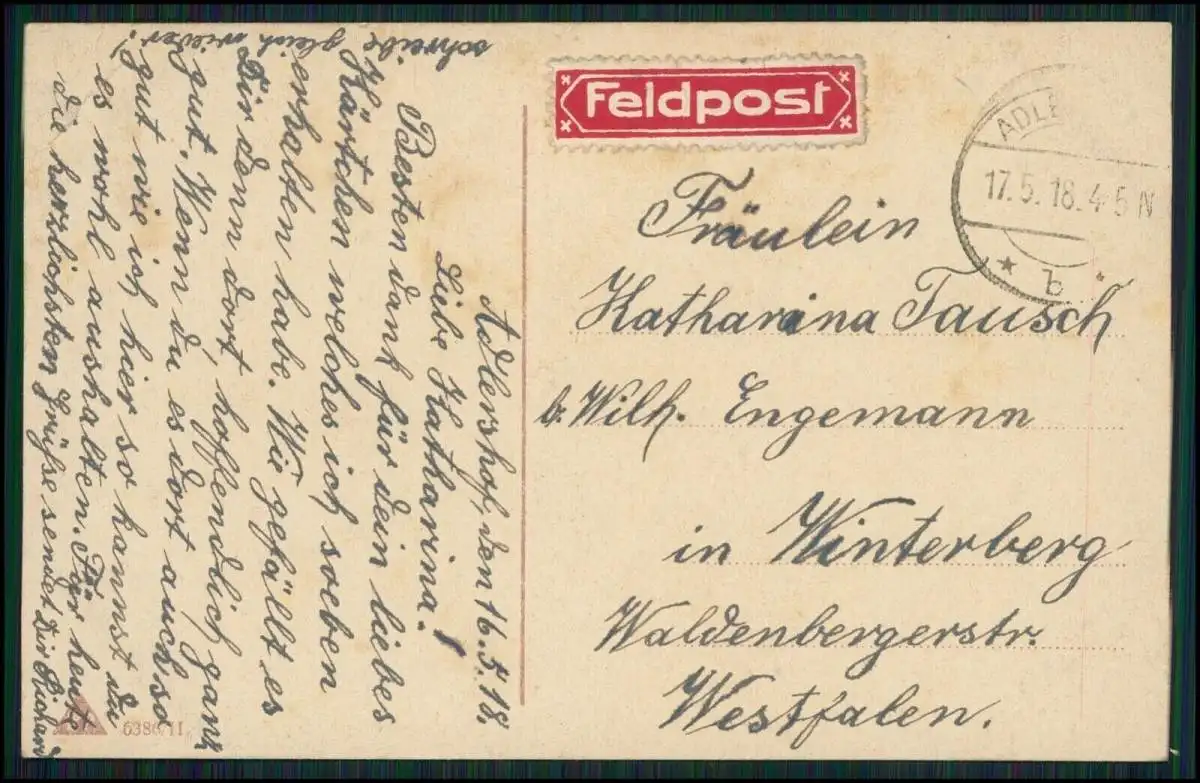 Feldpost
ADLE
17.5.18.4-5N
* b *
Fräulein
Katharina Tausch
b. Wilh. Engemann
in Winterberg
Waldenbergerstr.
Westfalen.
Adlershof, den 16.5.18.
Liebe Katharina!
Besten dank für dein liebes
Kärtchen welches ich soeben
erhalten habe. Wie gefällt es
Dir denn dort, hoffendlich ganz
gut. Wenn du es dort auch so
gut wie ich hier so kannst du
es wohl aushalten. Für heute
die herzlichsten Grüße sendet Dir Richard
schreibe gleich wieder!
6386/II